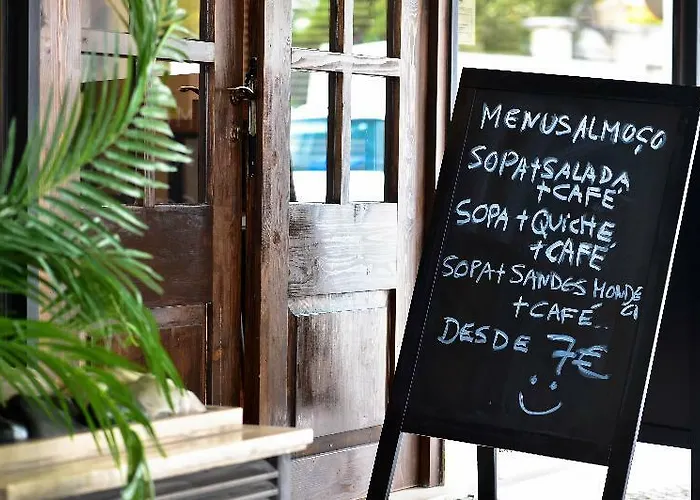 MENUS ALMOÇO
SOPA + SALADA
+ CAFÉ
SOPA + QUICHE
+ CAFÉ
SOPA + SANDES
+ CAFÉ..
DESDE 7€